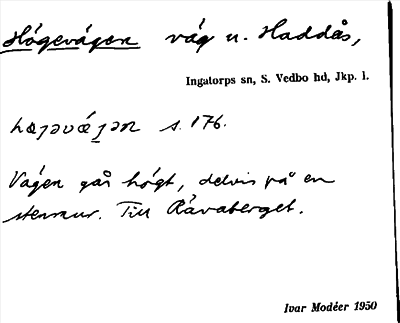 Högevägen väg n. Haddås,
Ingatorps sn, S. Vedbo hd, Jkp. l.
s. 176.
Vägen går högt, delvis på en
stenmur. Till Rävaberget.
Ivar Modéer 1950